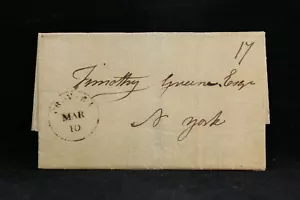 17
Timothy Greene Esqr
N York
MAR
10